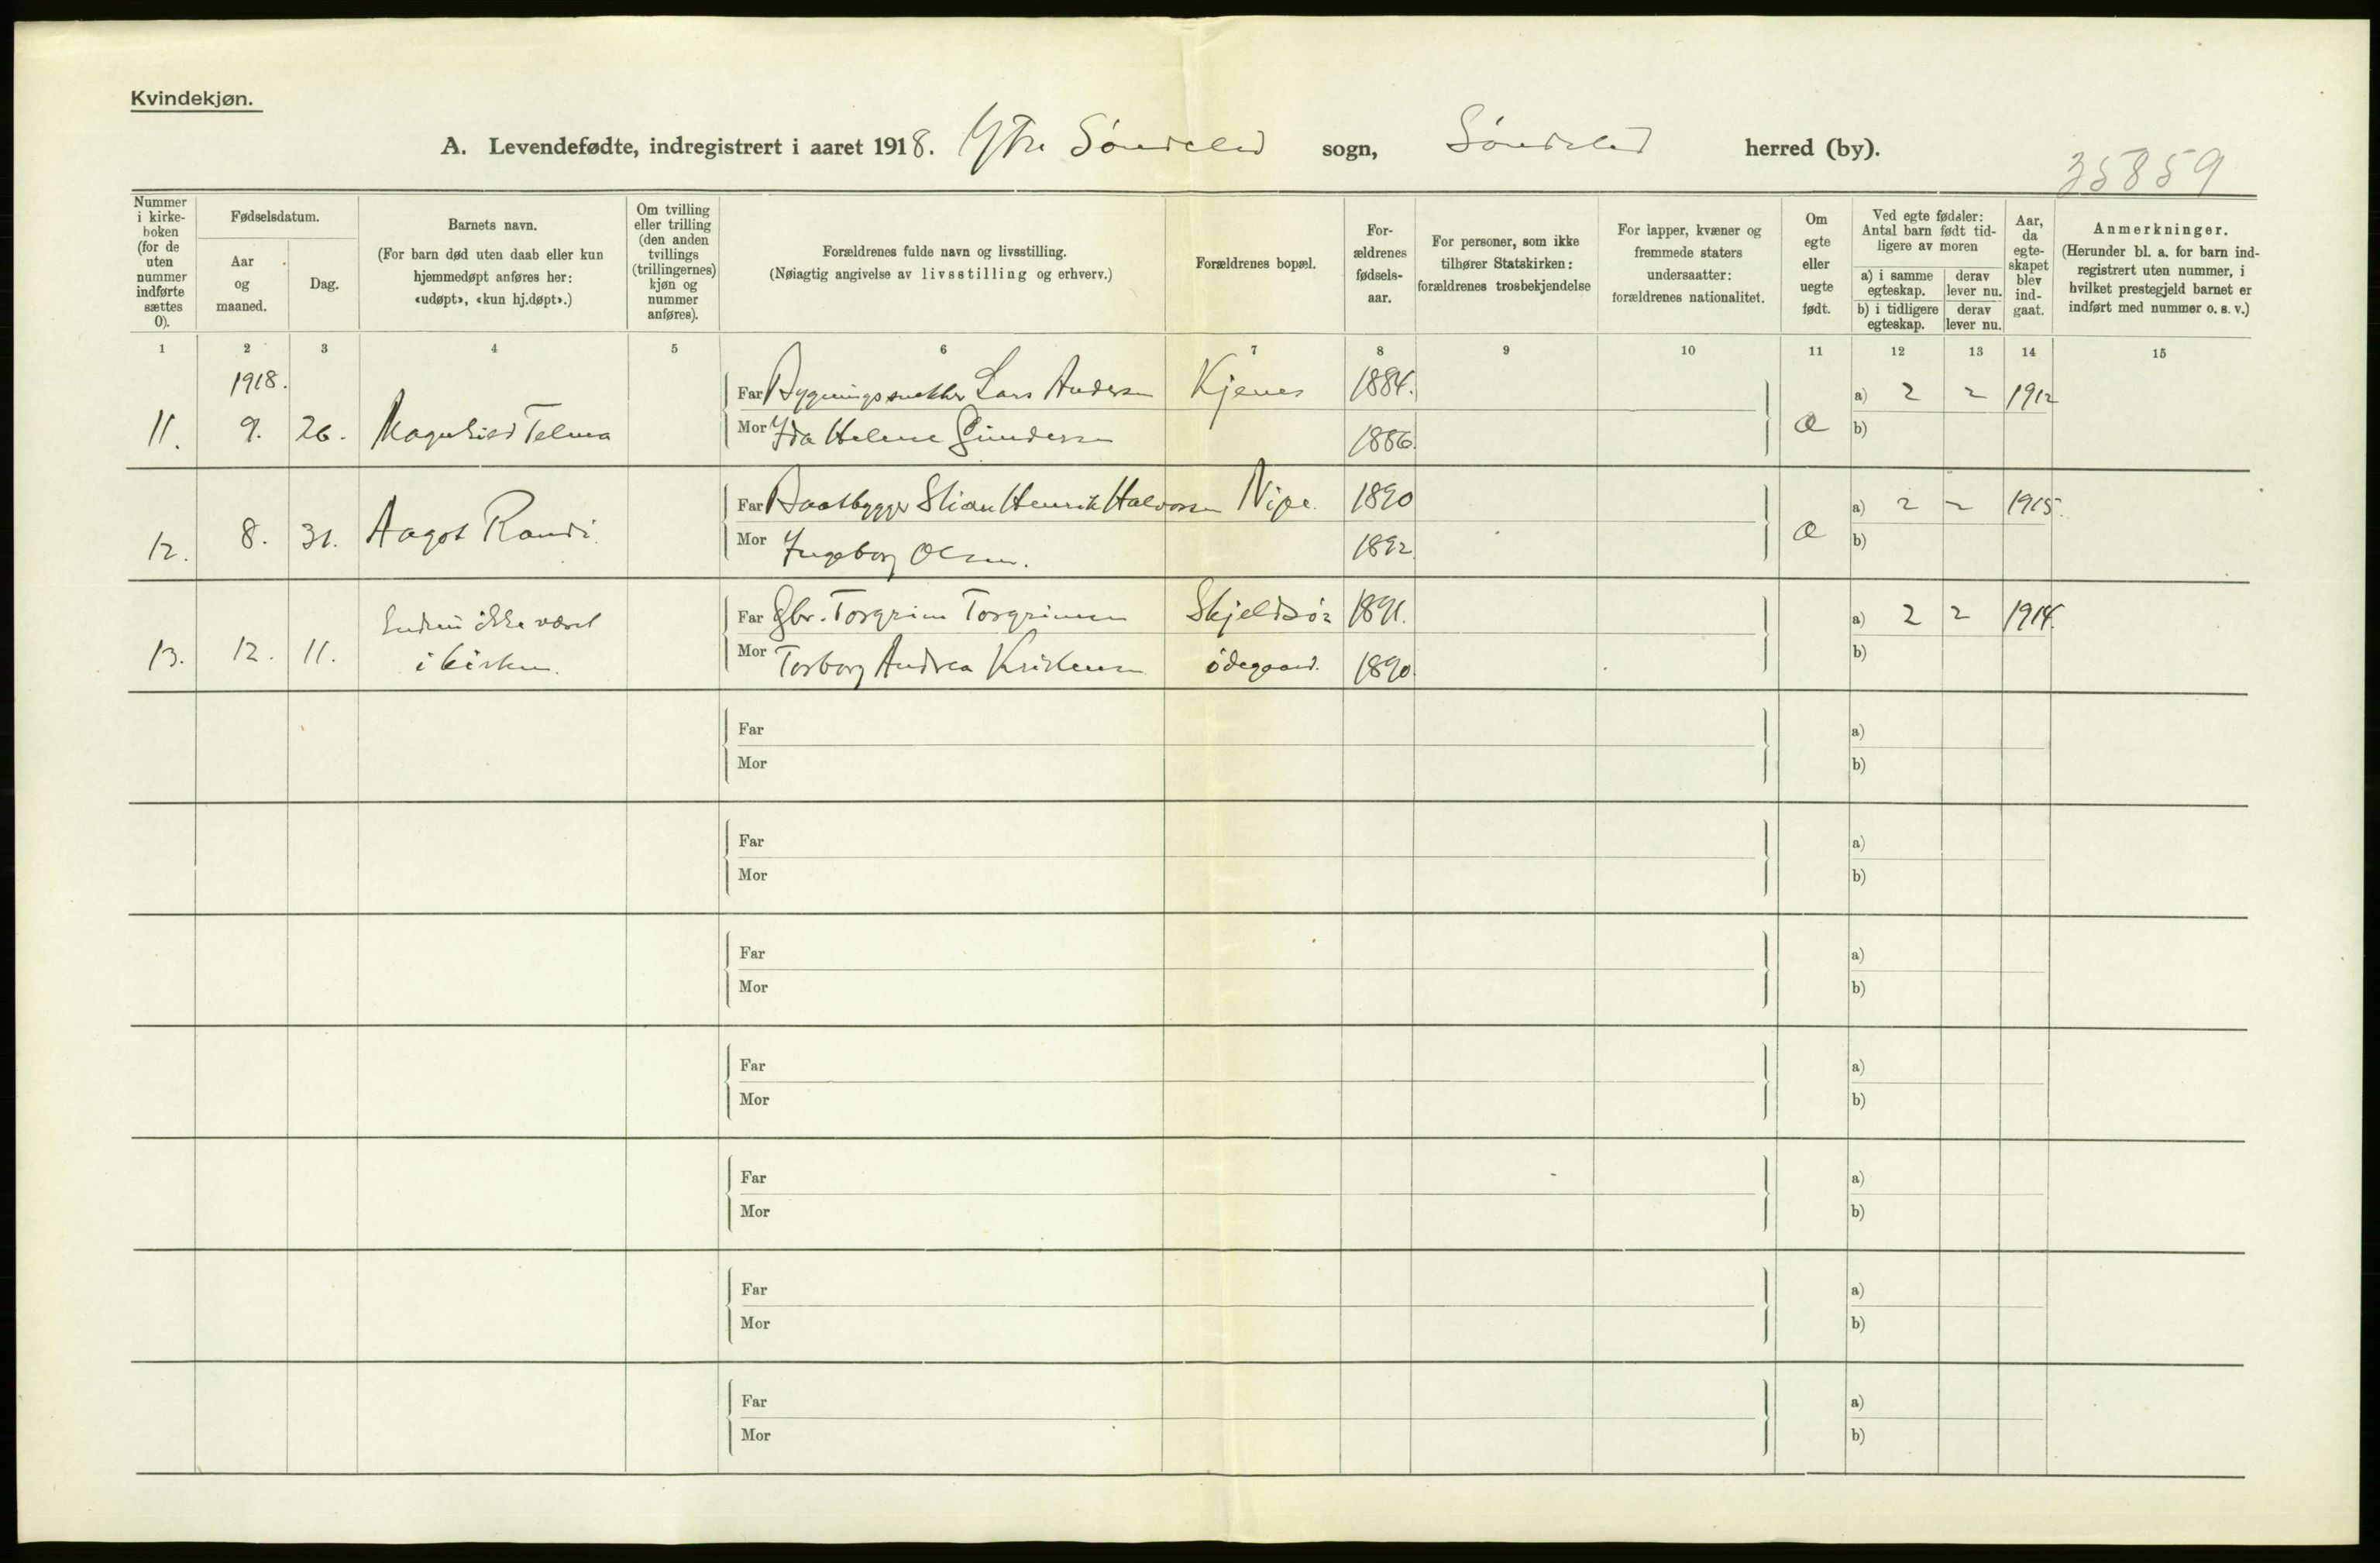 Kvindekjøn.
A. Levendefødte, indregistrert i aaret 1918. Ytre Søndeled sogn, Søndeled herred (by).
35859
Nummer i kirke-boken (for de uten nummer indførte sættes 0).
Fødselsdatum.
Aar og maaned.
Dag.
Barnets navn.
(For barn død uten daab eller kun hjemmedøpt anføres her: «udøpt», «kun hj.døpt».)
Om tvilling eller trilling (den anden tvillings (trillingernes) kjøn og nummer anføres).
Forældrenes fulde navn og livsstilling.
(Nøiagtig angivelse av livsstilling og erhverv.)
Forældrenes bopæl.
For-ældrenes fødsels-aar.
For personer, som ikke tilhører Statskirken: forældrenes trosbekjendelse
For lapper, kvæner og fremmede staters undersaatter: forældrenes nationalitet.
Om egte eller uegte født.
Ved egte fødsler: Antal barn født tid-ligere av moren
a) i samme egteskap.
derav lever nu.
b) i tidligere egteskap.
derav lever nu.
Aar, da egte-skapet blev ind-gaat.
Anmerkninger.
(Herunder bl. a. for barn ind-registrert uten nummer, i hvilket prestegjeld barnet er indført med nummer o. s. v.)
1 2 3 4 5 6 7 8 9 10 11 12 13 14 15
1918.
11. 9. 26. Magnhild Telma
Far Bygningssnekker Lars Andersen Kjenes 1884. a) 2 2 1912
Mor Ida Helene Gundersen 1886. Æ b)
12. 8. 31. Aagot Randi.
Far Baatbygger Stian Henrik Halvorsen Nipe. 1890 a) 2 2 1915.
Mor Ingeborg Olsen. 1892 Æ b)
13. 12. 11. Endnu ikke været i kirken.
Far Gbr. Torgrim Torgrimsen Skjeldsø 1891. a) 2 2 1914.
Mor Torborg Andrea Kristensen ødegaard. 1890. b)
Far a)
Mor b)
Far a)
Mor b)
Far a)
Mor b)
Far a)
Mor b)
Far a)
Mor b)
Far a)
Mor b)
Far a)
Mor b)